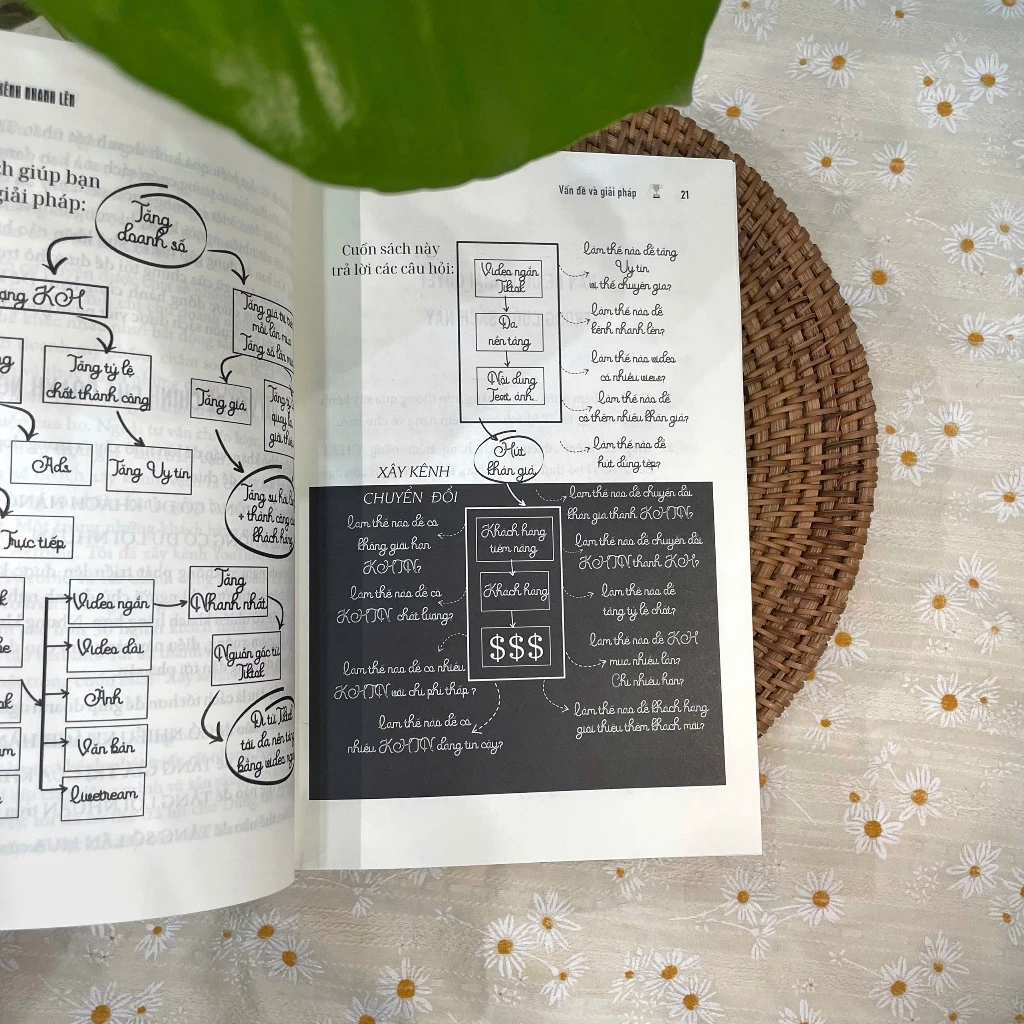 KÊNH NHANH LÊN
ch giúp bạn
giải pháp:
Tăng
doanh số
ạng KH
Tăng tỷ lệ
chốt thành công
Tăng giá trị
mỗi lần mua
Tăng số lần
Tăng giá
Ads
Tăng Uy tín
Tăng sự hài
+ thành công
khách hàng
Trực tiếp
Video ngắn
Video dài
Ảnh
Văn bản
Livestream
Tăng
Nhanh nhất
Nguồn gốc từ
Tiktok
Đi từ Tiktok
tối đa nền tảng
bằng video
Vấn đề và giải pháp 21
Cuốn sách này
trả lời các câu hỏi:
Video ngắn
Tiktok
Đa
nền tảng
Nội dung
Text ảnh
Làm thế nào để tăng
Uy tín
vị thế chuyên gia?
Làm thế nào để
kênh nhanh lên?
Làm thế nào video
có nhiều view?
Làm thế nào để
có thêm nhiều khán giả?
Làm thế nào để
hút đúng tệp?
Hút
khán giả
XÂY KÊNH
CHUYỂN ĐỔI
Làm thế nào để có
không giới hạn
KHTN?
Làm thế nào để có
KHTN chất lượng?
Làm thế nào để có nhiều
KHTN với chi phí thấp?
Làm thế nào để có
nhiều KHTN đáng tin cậy?
Khách hàng
tiềm năng
Khách hàng
$$$
Làm thế nào để chuyển đổi
khán giả thành KHTN?
Làm thế nào để chuyển đổi
KHTN thành KH?
Làm thế nào để
tăng tỷ lệ chốt?
Làm thế nào để KH
mua nhiều lần?
Chi nhiều hơn?
Làm thế nào để khách hàng
giới thiệu thêm khách mới?